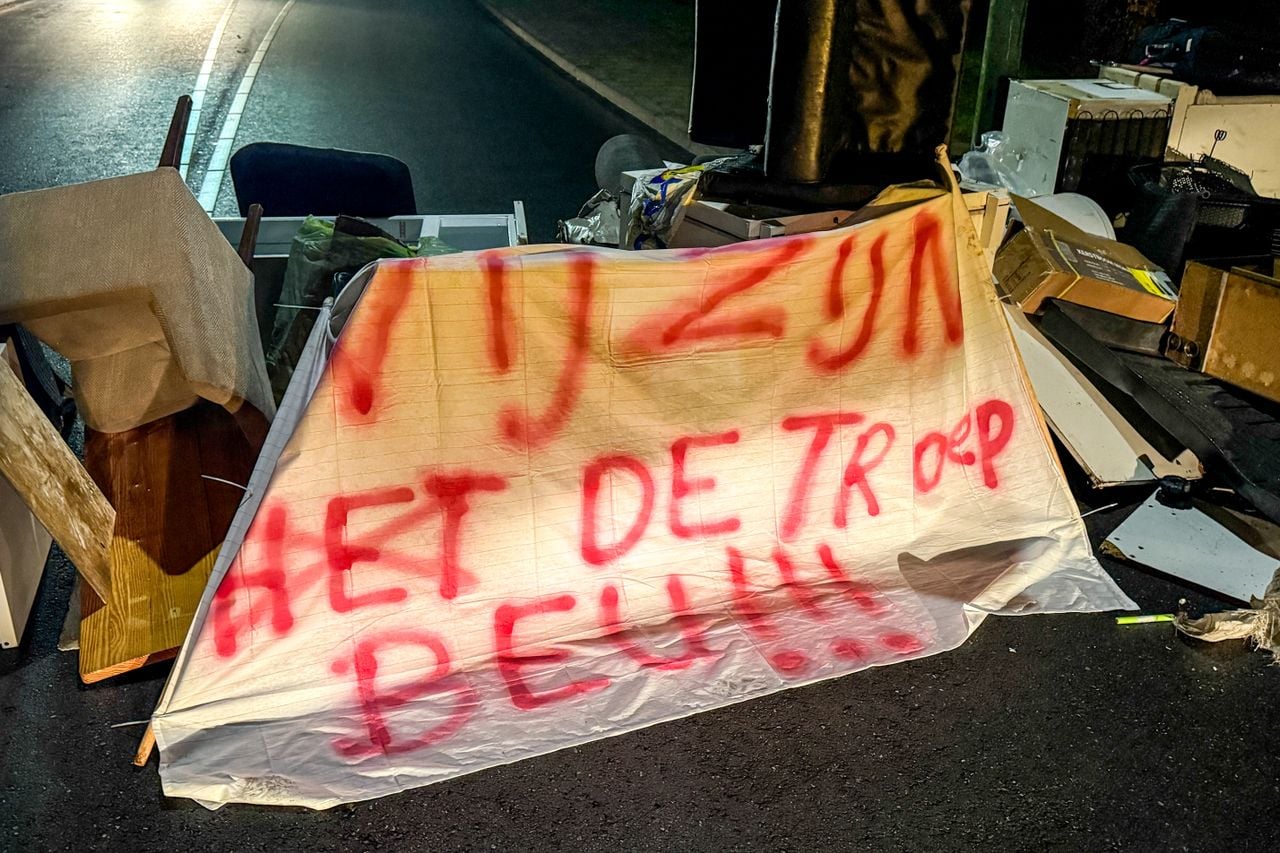 WIJ ZIJN
HET DE TROEP
BEU!!!